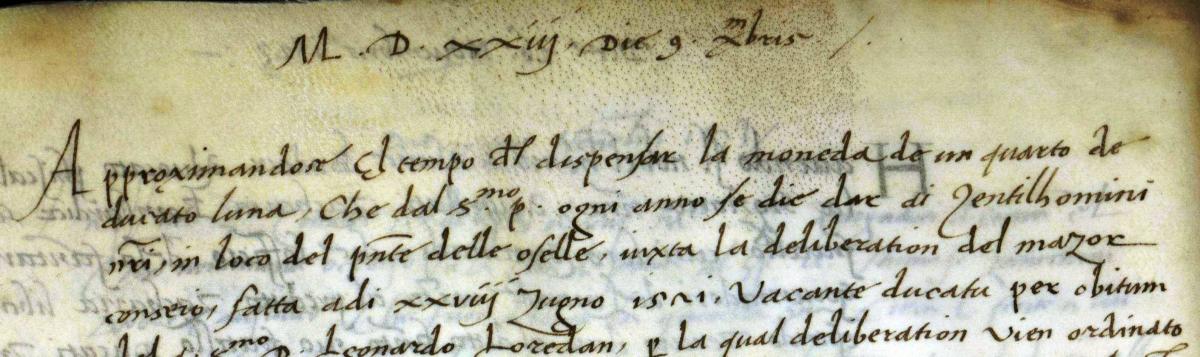 M. D. xxiij. Die 9. Xbris
Approximandose El tempo del dispensar la moneda de un quarto de
ducato luna, Che dal S.mo p. ogni anno se die dar di Zentilhomini
nri, in loco del pnte delle oselle, iuxta la deliberation del mazor
conseio, fatta adi xxviij Zugno 1521. Vacante ducatu per obitum
S.mo D. Leonardo Loredan, p la qual deliberation vien ordinato